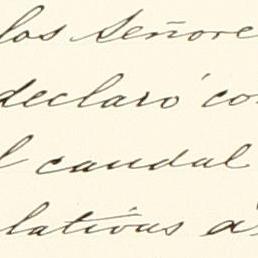 los Señore
declaró con
l caudal
lativas á